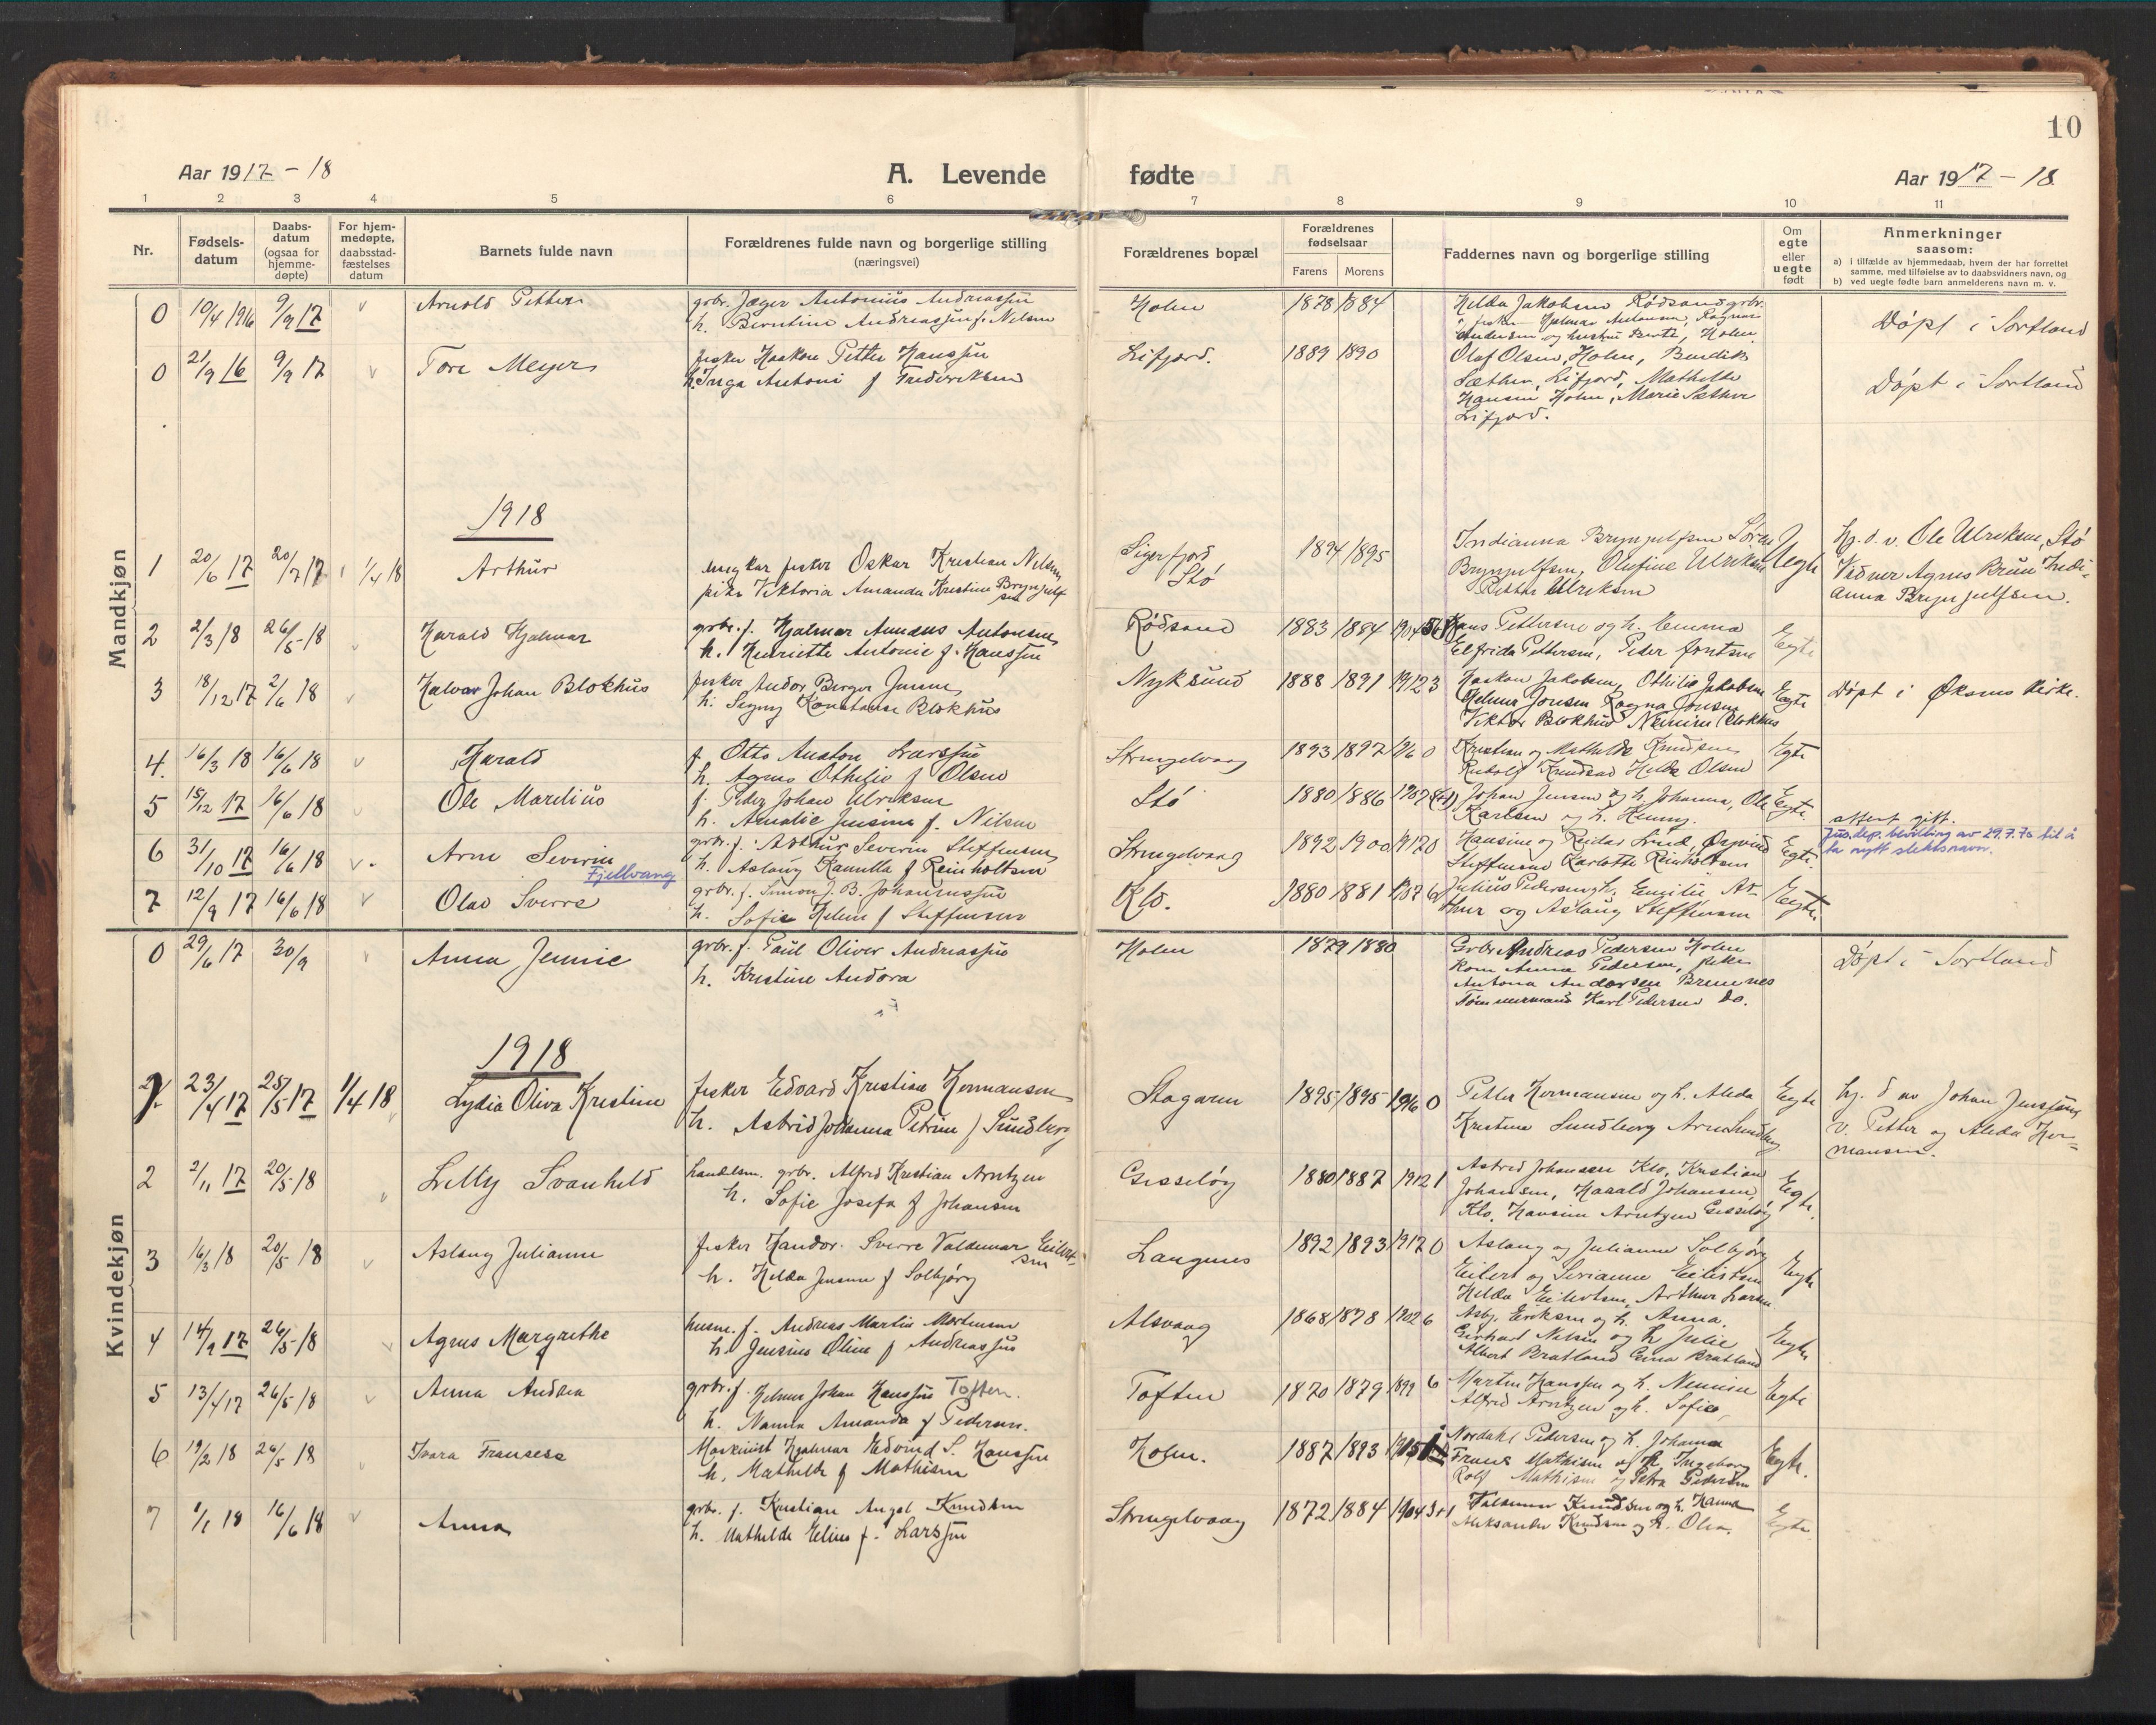 10
Aar 1917 - 18
A. Levende
fødte
Aar 1917 - 18
1 2 3 4 5 6 7 8 9 10 11
Nr.
Fødsels-
datum
Daabs-
datum
(ogsaa for
hjemme-
døpte)
For hjem-
medøpte,
daabsstad-
fæstelses
datum
Barnets fulde navn
Forældrenes fulde navn og borgerlige stilling
(næringsvei)
Forældrenes bopæl
Forældrenes
fødselsaar
Farens Morens
Faddernes navn og borgerlige stilling
Om
egte
eller
uegte
født
Anmerkninger
saasom:
a) i tilfælde av hjemmedaab, hvem der har forrettet
samme, med tilføielse av to daabsvidners navn, og
b) ved uegte fødte barn anmelderens navn m. v.
Mandkjøn
0 10/4 1916 9/9 17 Arnold Petter
grbr. Jæger Antonius Andreassen
h. Berntine Andreassen f. Nilsen
Holm 1878 1884
Hilda Jakobsen Rødsand grbr.
Andersen og hustru Holm
Døpt i Sortland
0 21/9 16 9/9 17 Tore Meyer
fisker Haakon Petter Hanssen
h. Inga Antoni f Frederiksen
Lifjord. 1889 1890
Olaf Olsen, Holm, Bendik
Sæther, Lifjord, Mathilde
Hansen Holm, Marie Sæther
Lifjord.
Døpt i Sortland
1918
1 20/6 17 20/7 17 1/4 18 Arthur
ungkar fisker Oskar Kristian Nilsen
pike Viktoria Amanda Kristine Brynjulf
sen
Sigerfjord
Stø
1894 1895
Indianna Brynjulfsen Søren
Brynjulfsen, Olufine Ulriksen
Petter Ulriksen
Uegte
Hj. d. v. Ole Ulriksen, Stø
Vidner Agnes Brun Indi-
anna Brynjulfsen.
2 2/3 18 26/5 18 Harald Hjalmar
grbr. f. Hjalmar Amandus Antonsen
h. Henriette Antonie f. Hanssen
Rødsand 1883 1884 1904
Hans Pettersen og h. Emma
Elfrida Pettersen, Peder Arntsen
Egte
3 18/12 17 2/6 18 Halvar Johan Blokhus
fisker Andor Berger Jensen
h. Signy Konstanse Blokhus
Nyksund 1888 1891 1912 3
Haakon Jakobsen, Othilie Jakobsen
Helmer Jonsen Ragna Jonsen
Viktor Blokhus Nennine Blokhus
Egte
Døpt i Øksnes kirke.
4. 16/3 18 16/6 18 Harald
f Otto Anston Larssen
h. Agnes Othilie f Olsen
Strengelvaag 1893 1897 1916 0
Kristian og Mathilde Knudsen
Rudolf Knudsen Hilda Olsen
Egte
5 15/12 17 16/6 18 Ole Marelius
f. Peder Johan Ulriksen
h. Amalie Jensine f. Nilsen
Stø 1880 1886 1907
Johan Jensen og h. Johanna, Ole
Karlsen og h. Henny.
Egte.
6 31/10 17 16/6 18 Arne Severin
Fjellvang
grbr. f. Arthur Severin Steffensen
h. Aslaug Kamilla f Reinholtsen
Strengelvaag 1892 1900 1917 0
Hansine og Reidar Lind, Øyvind
Steffensen Karlotte Reinholtsen
Egte.
attest gift.
Jus. dep. bevilling av 29.7.70 til å
ta nytt slektsnavn.
7 12/9 17 16/6 18 Olav Sverre
grbr. f. Simon J. B. Johannessen
h. Sofie Helene f Steffensen
Klo. 1880 1881 1907 6
Julius Pedersen og h. Emilie Ar-
thur og Aslaug Steffensen
Egte.
Kvindekjøn
0 29/6 17 30/9 Anna Jennie
grbr. f. Paul Oliver Andreassen
h. Kristine Andora
Holm 1879 1880
Grbr Andreas Pedersen Holm
Kone Anna Pedersen, pike
Antona Andersen Bremnes
Tømmermand Karl Pedersen do.
Døpt i Sortland
1918
1. 23/4 17 25/5 17 1/4 18 Lydia Oliva Kristine
fisker Edvard Kristian Hermansen
h. Astrid Johanna Petrine f Sundberg
Skogøren 1895 1895 1916 0
Petter Hermansen og h. Aleda
Kristine Sundberg Arne Sundberg
Egte
hj. d av Johan Jenssen
v. Petter og Aleda Her-
mansen.
2 2/11 17 20/5 18 Lilly Svanhild
handelsm. grbr. Alfred Kristian Arntzen
h. Sofie Josefa f Johansen
Gisseløy 1880 1887 1912 1
Astrid Johansen Klo, Kristian
Johansen, Harald Johansen,
Klo, Hansine Arntzen Gisseløy
Egte.
3 16/3 18 20/5 18 Aslaug Julianne
fisker Handor. Sverre Valdemar Eilert-
sen
h. Hilda Jensine f Solbjørg
Langenes 1892 1893 1917 0
Aslaug og Julianne Solbjørg
Eilert og Serianne Eilertsen
Hilda Eilertsen, Arthur Larsen
Egte
4 14/9 17 26/5 18 Agnes Margrethe
husm. f. Andreas Martin Mortensen
h. Jensine Oline f Andreassen
Alsvaag 1868 1878 1902 6
Asbj. Eriksen og h. Anna.
Gerhard Nilsen og h Julie
Albert Bratland Erna Bratland
Egte
5 13/4 17 26/5 18 Anna Andrea
grbr. f. Helmer Johan Hanssen Toften.
h. Nanna Amanda f Pedersen.
Toften 1870 1879 1899 6
Martin Hanssen og h. Nennine
Alfred Arntzen og h. Sofie,
Egte
6 19/2 18 26/5 18 Ivara Fransesa
Maskinist Hjalmar Edvind S. Hanssen
h. Mathilde f Mathisen
Holm. 1887 1893 1915
Nordahl Pedersen og h. Johanna
Frans Mathisen og h. Ingeborg
Rolf Mathisen og Petra Pedersen
Egte.
7 1/1 18 16/6 18 Anna
grbr. f. Kristian Angel Knudsen
h. Mathilde Eline f. Larssen
Strengelvaag 1872 1884 1904 3+1
Valdemar Knudsen og h. Hanna
Aleksander Knudsen og h. Olea.
Egte